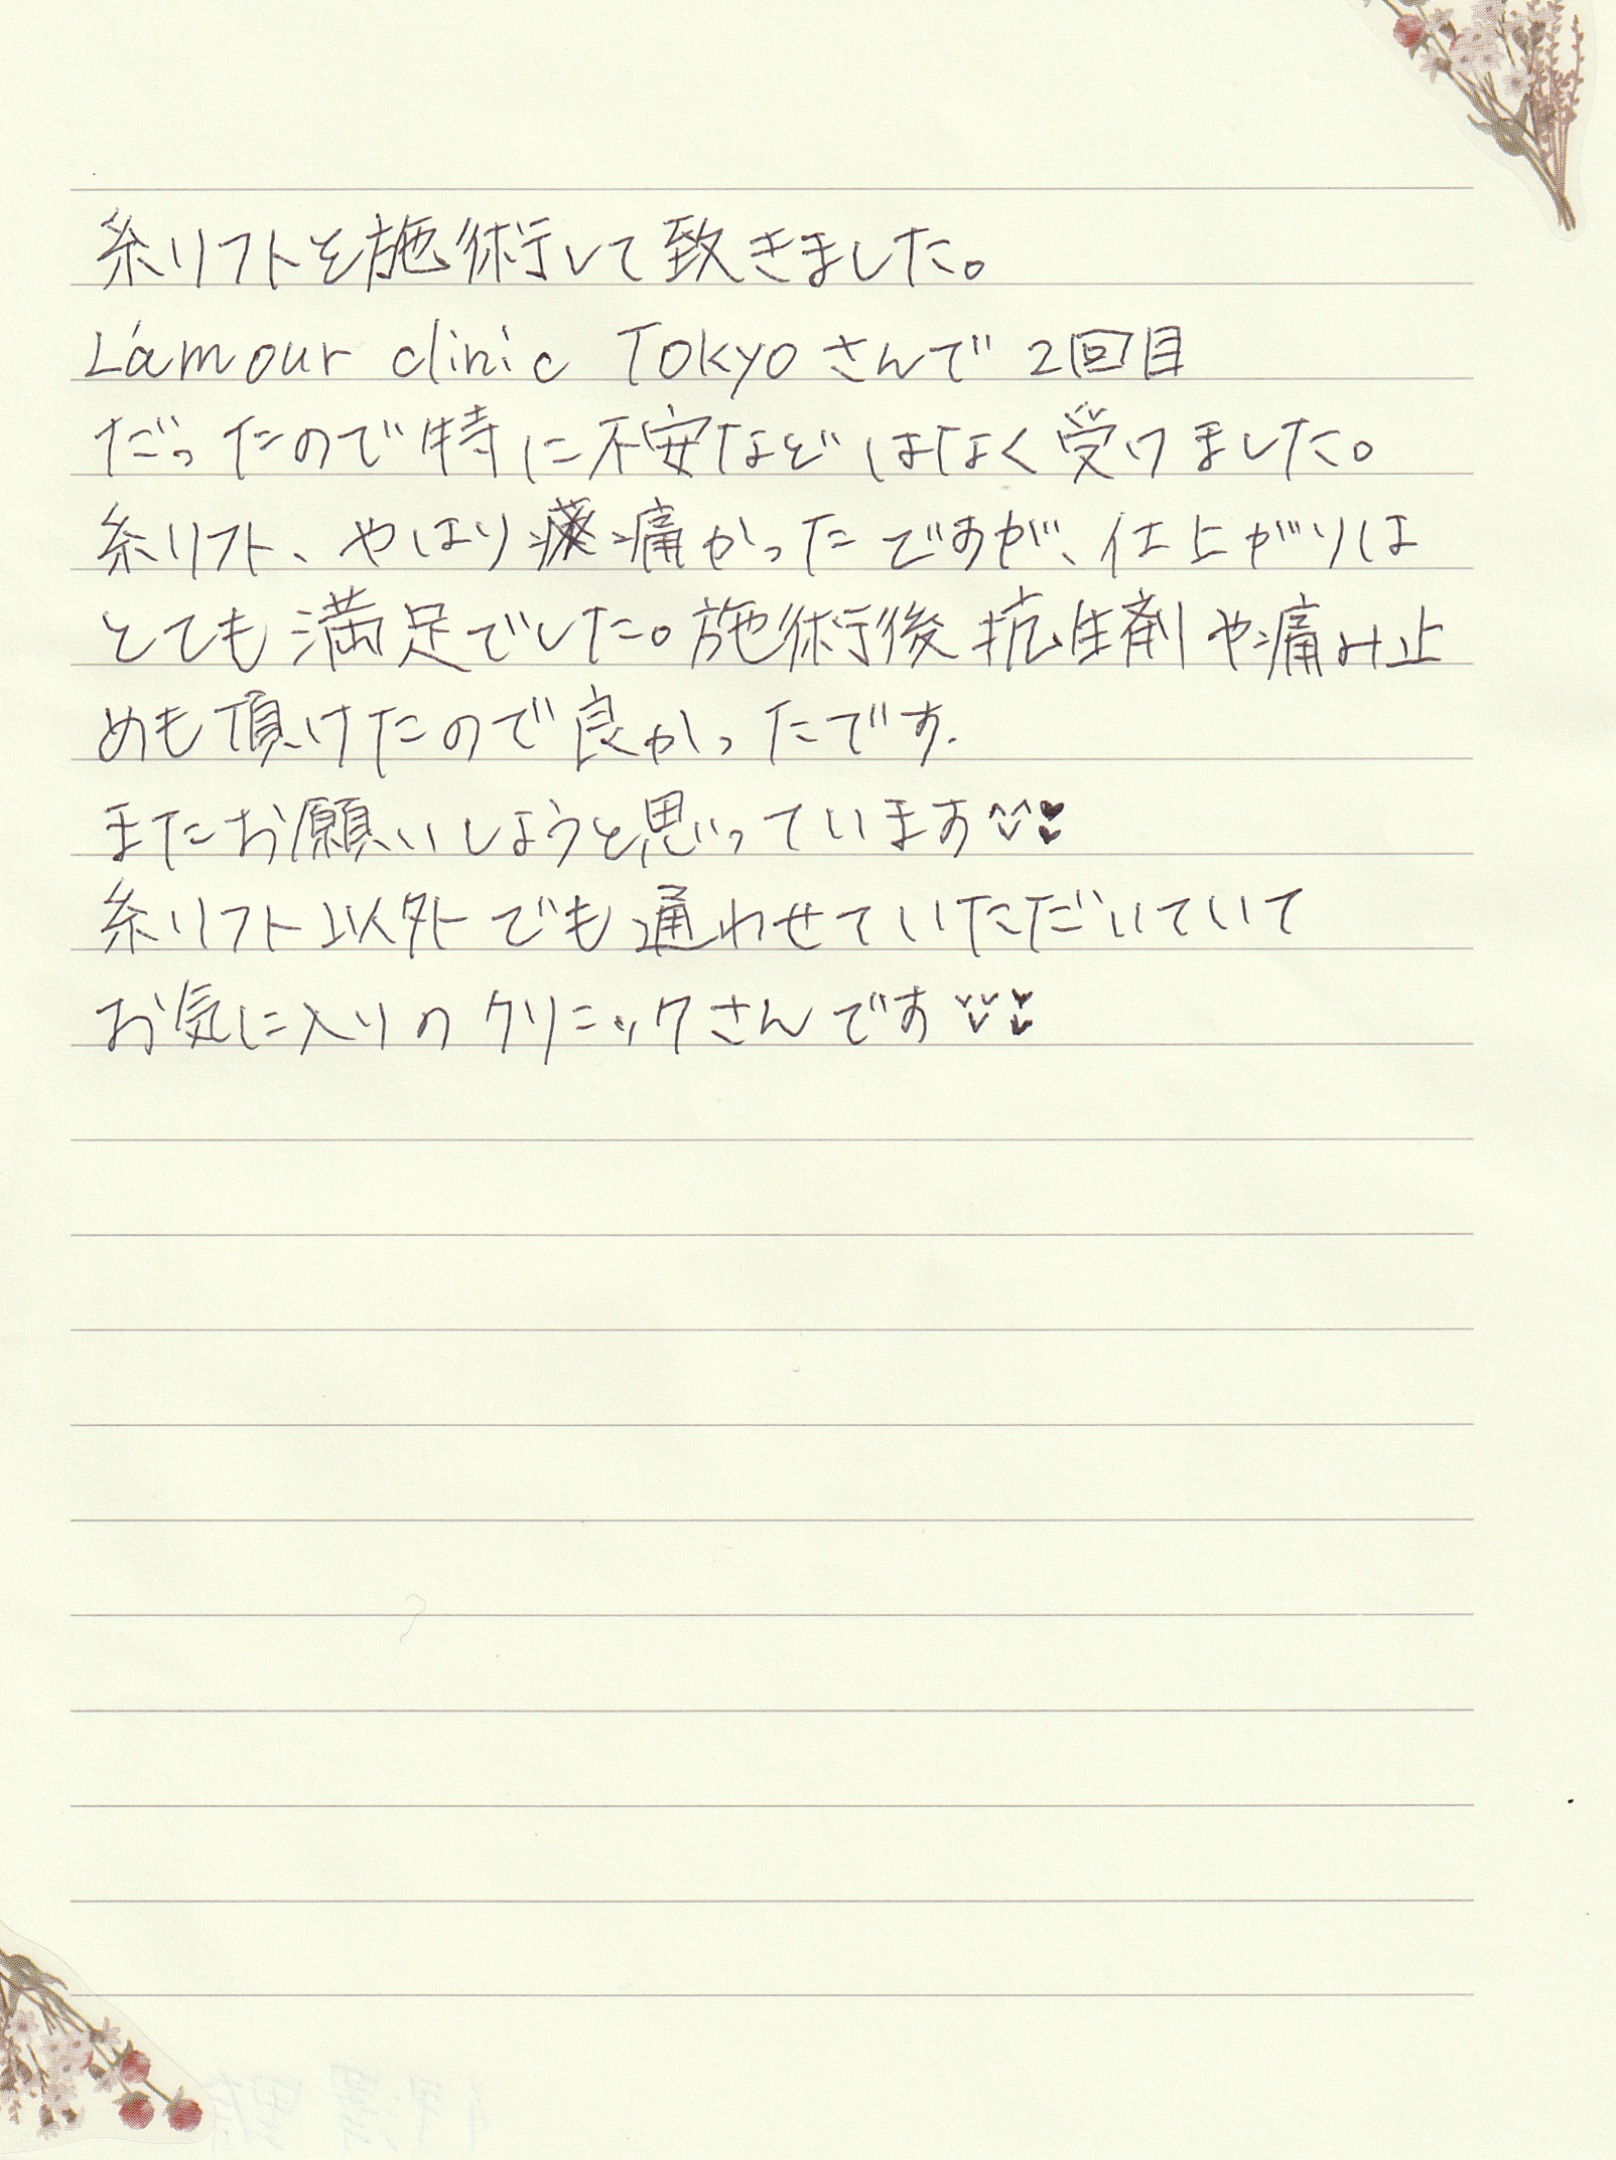 糸リフトを施術して致きました。
L'amour clinic Tokyoさんで2回目
だったので特に不安などはなく受けました。
糸リフト、やはり痛かったですが、仕上がりは
とても満足でした。施術後抗生剤や痛み止
めも頂けたので良かったです.
またお願いしようと思っています♡♥
糸リフト以外でも通わせていただいていて
お気に入りのクリニックさんです♡♥